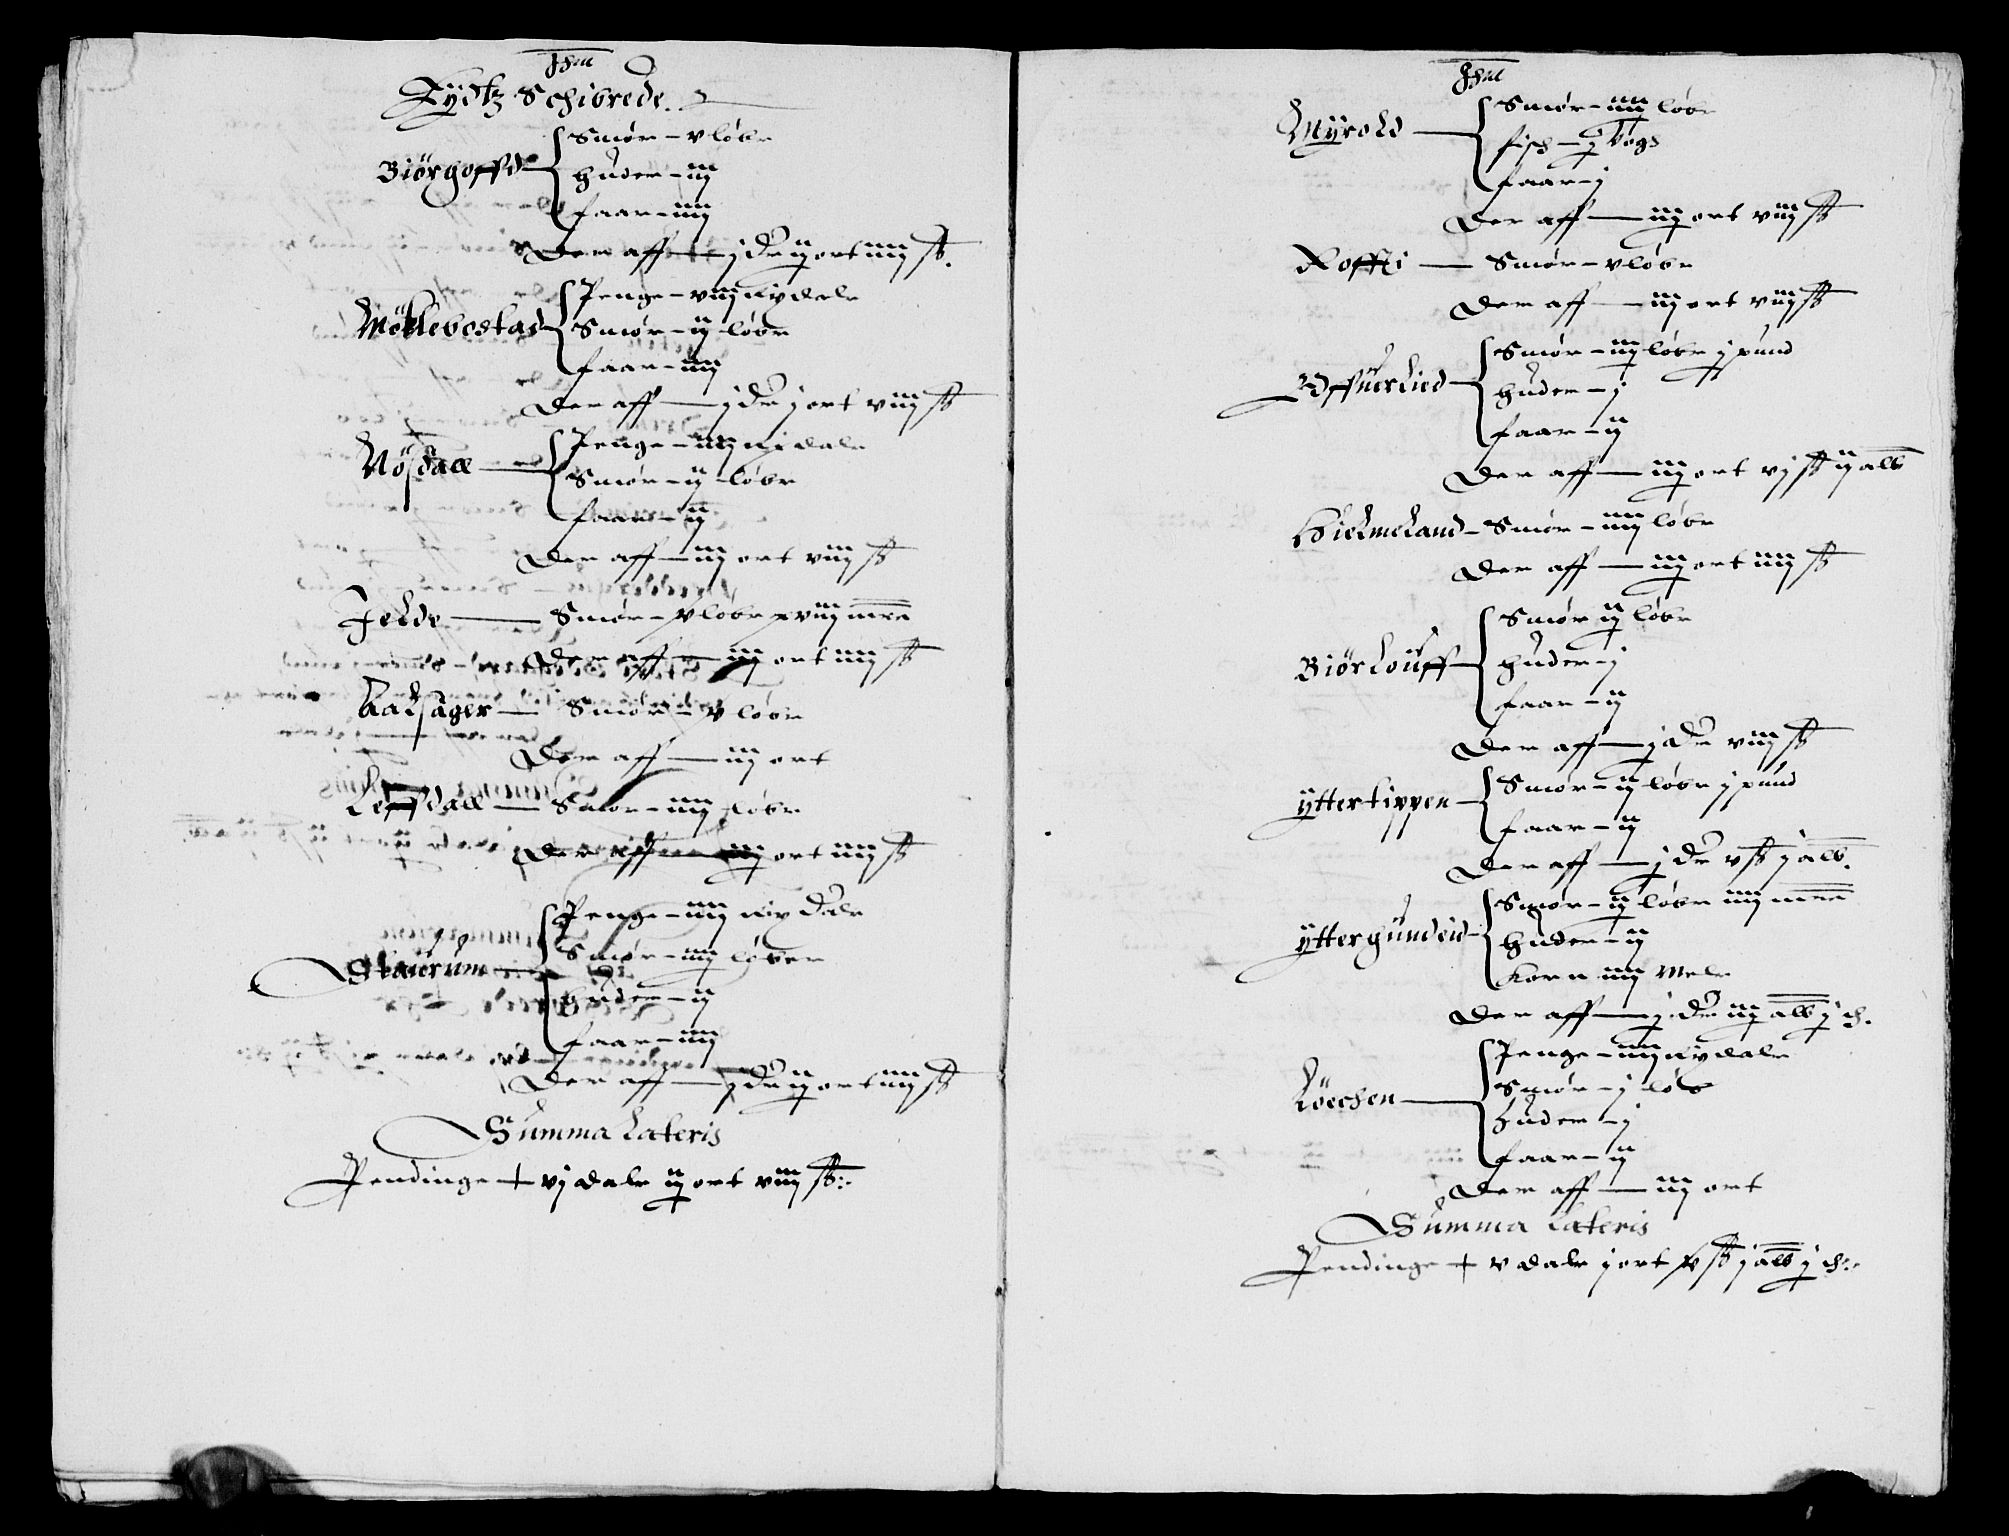 Jhm
Eÿdtz Schibrede.
Biörgoffd
Smör – v löbr
huder – iij
faar – iiij
Der aff — j dlr ij ort iiij ß.
Möklebostad
Penge – viij ny dalr
Smör – ij löbr
faar – iiij
Der aff — j dlr j ort viij ß
Nösdall
Penge – iiij ny dalr
Smör – ij löbr
faar – ij
Der aff — iij ort viij ß
Jelde — Smör – v löbr xviij mrk
Der aff — iij ort iiij ß
Aaksager — Smör – v löbr
Der aff — iij ort
Leffdall — Smör – iiij löbr
Der aff — iij ort iiij ß
Skaurum
Penge – iiij ny dalr
Smör – iiij löber
huder – ij
faar – iiij
Der aff — j dlr ij ort iiij ß
Summa Lateris
Pendinge + vj dalr ij ort viij ß
Jhm
Myrold
Smör – iiij löbr
fisch – j Vogh
faar – j
Der aff — iij ort viij ß
Roffti — Smör – v löbr
Der aff — iij ort viij ß
Offuerlied
Smör – iij löbr j pund
huder – j
faar – ij
Der aff — iij ort vj ß ij alb
Hielmeland – Smör – iiij löbr
Der aff — iij ort iiij ß
Biörlouff
Smör ij löbr
huder – j
faar – ij
Der aff — j dlr viij ß
ÿttertippen
Smör – ij löbr j pund
faar – ij
Der aff — j dlr v ß j alb.
ÿttergundeid
Smör – ij löbr iiij mrk
huder – ij
Korn iiij Mele
Der aff — j dlr iij alb j ch.
Löechen
Penge – iiij ny dalr
Smör – j löb
huder – j
faar – ij
Der aff — iij ort
Summa Lateris
Pendinge + v dalr j ort v ß j alb j ch